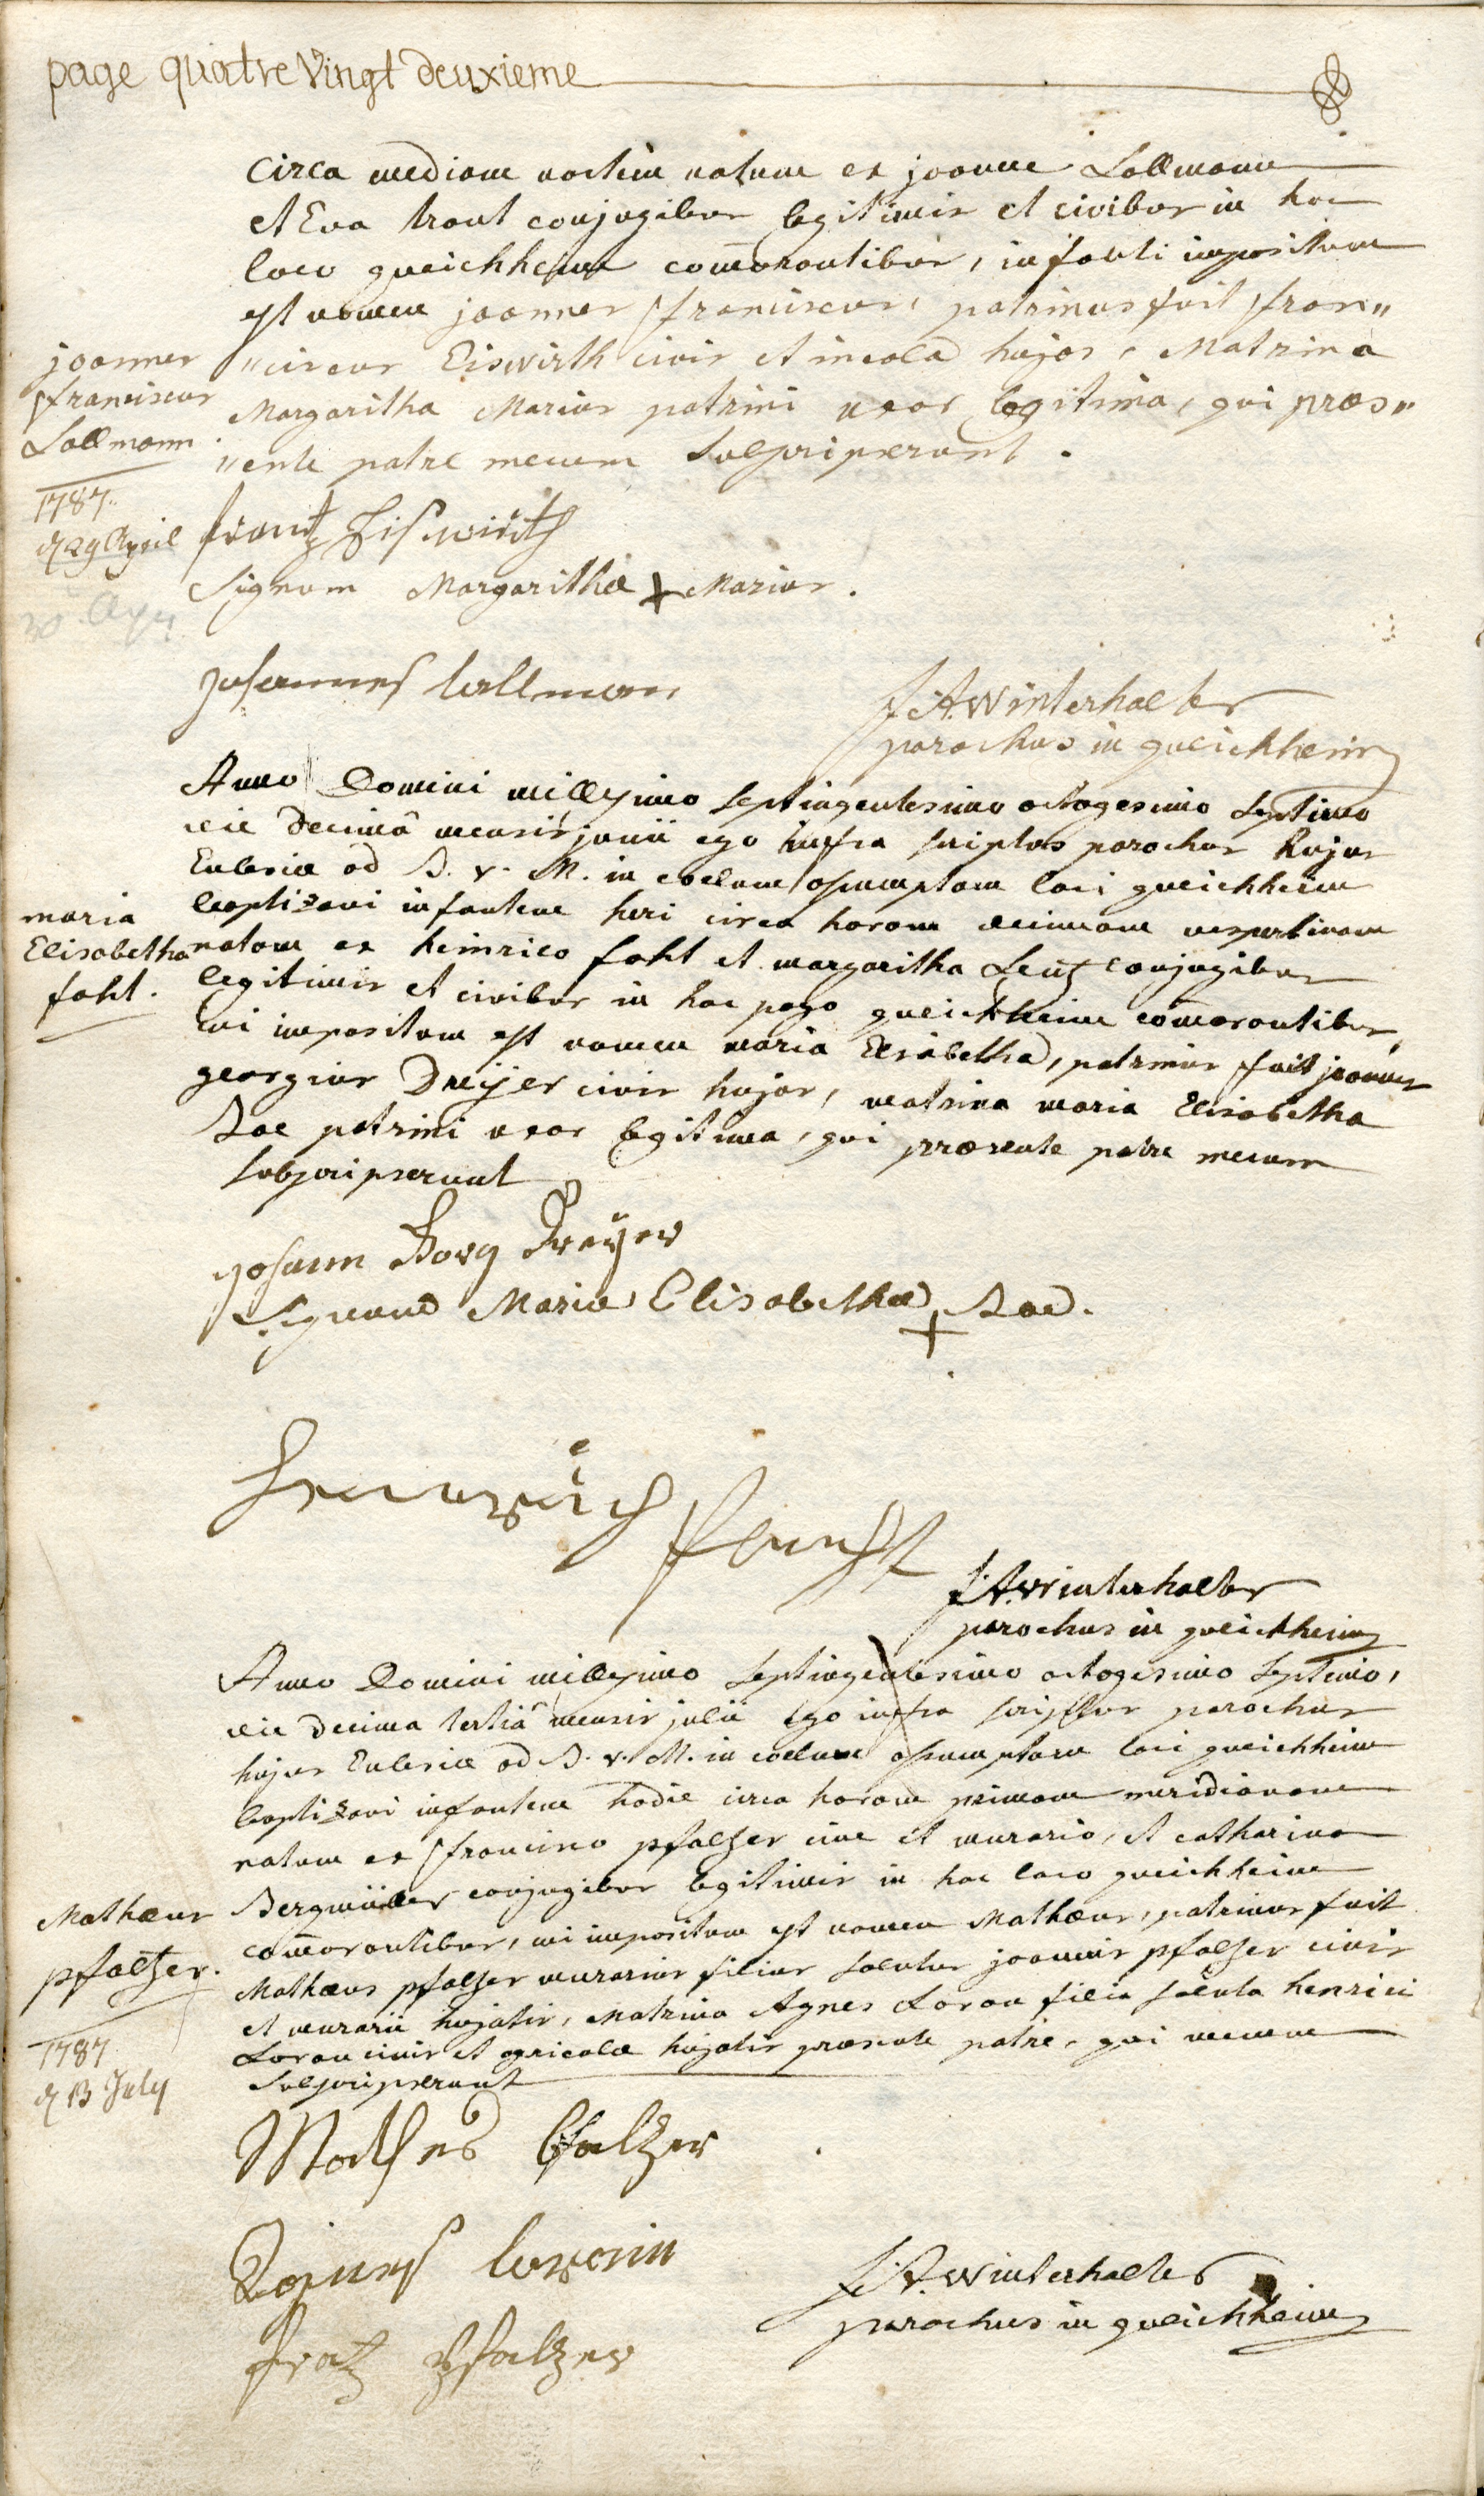 page quatre Vingt deuxieme
Circa mediam noctem natum ex joanne Lallmann
et Eva traut conjugibus legitimis et civibus in hoc
loco queichheim com̄orantibus, infanti impositum
est nomen joannes franciscus, patrinus fuit fran"
"ciscus Eiswirth civis et incola hujas, Matrina
Margaritha Marius patrini uxor legitima, qui præs"
"ente patre mecum subscripserunt.
joannes
franciscus
Lallmann.
1787.
d 29 April
frantz Eiswirth
Signum Margarithæ + Marius.
30 Apr
Johannes lallman
f. A. Winterhalter
parochus in queichheim
Anno Domini millesimo septingentesimo octogesimo septimo
die decimâ mensis junii ego infra scriptus parochus hujus
Ecclesiæ ad B. V. M. in coelum assumptam loci queichheim
baptizavi infantem heri circa horam decimam vespertinam
natam ex heinrico faht et margaritha Lentz conjugibus
legitimis et civibus in hoc pago queichheim com̄orantibus,
cui impositum est nomen maria Elisabetha, patrinus fuit joannes
georgius Dreÿer civis hujas, matrina maria Elisabetha
patrini uxor legitima, qui præsente patre mecum
subscripserunt
maria
Elisabetha
faht.
Johann Georg Dreÿer
Signum Mariæ Elisabethæ +
Heinrich
f. A. Winterhalter
parochus in queichheim
Anno Domini millesimo septingentesimo octogesimo septimo,
die decima tertiâ mensis julii ego infra scriptus parochus
hujus Ecclesiæ ad B. V. M. in coelum assumptam loci queichheim
baptizavi infantem hodie circa horam primam meridianam
natum ex francisco pfaltzer cive et murario, et catharina
Bergmüller conjugibus legitimis in hoc loco queichheim
com̄orantibus, cui impositum est nomen Mathæus, patrinus fuit
Mathæus pfaltzer murarius filius solutus joannis pfaltzer civis
et murarii hujatis, Matrina Agnes Loran filia soluta henrici
Loran civis et agricolæ hujatis præsente patre, qui mecum
subscripserunt
Mathæus
pfaltzer.
1787
d 13 July
Mathes Pfaltzer
Agnes lororin
frantz Pfaltzer
f. A. Winterhalter
parochus in queichheim